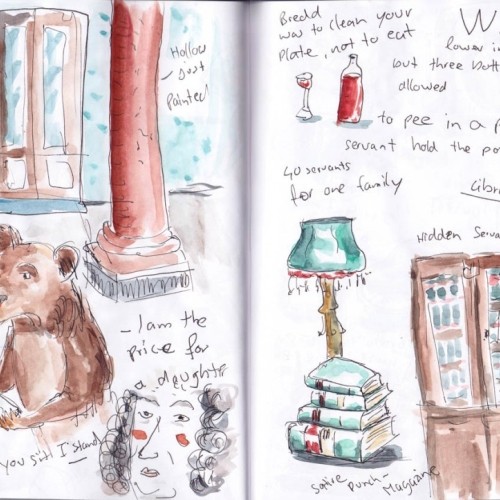 Hollow
- Just
Painted
- I am the
price for
a daughte
you sit I stand
Bredd
way to clean your
plate, not to eat
W
lower in
but three bott
allowed
to pee in a p
servant hold the po
40 servants
for one family
Libr
Hidden Serva
Satire Punch -
Magazine